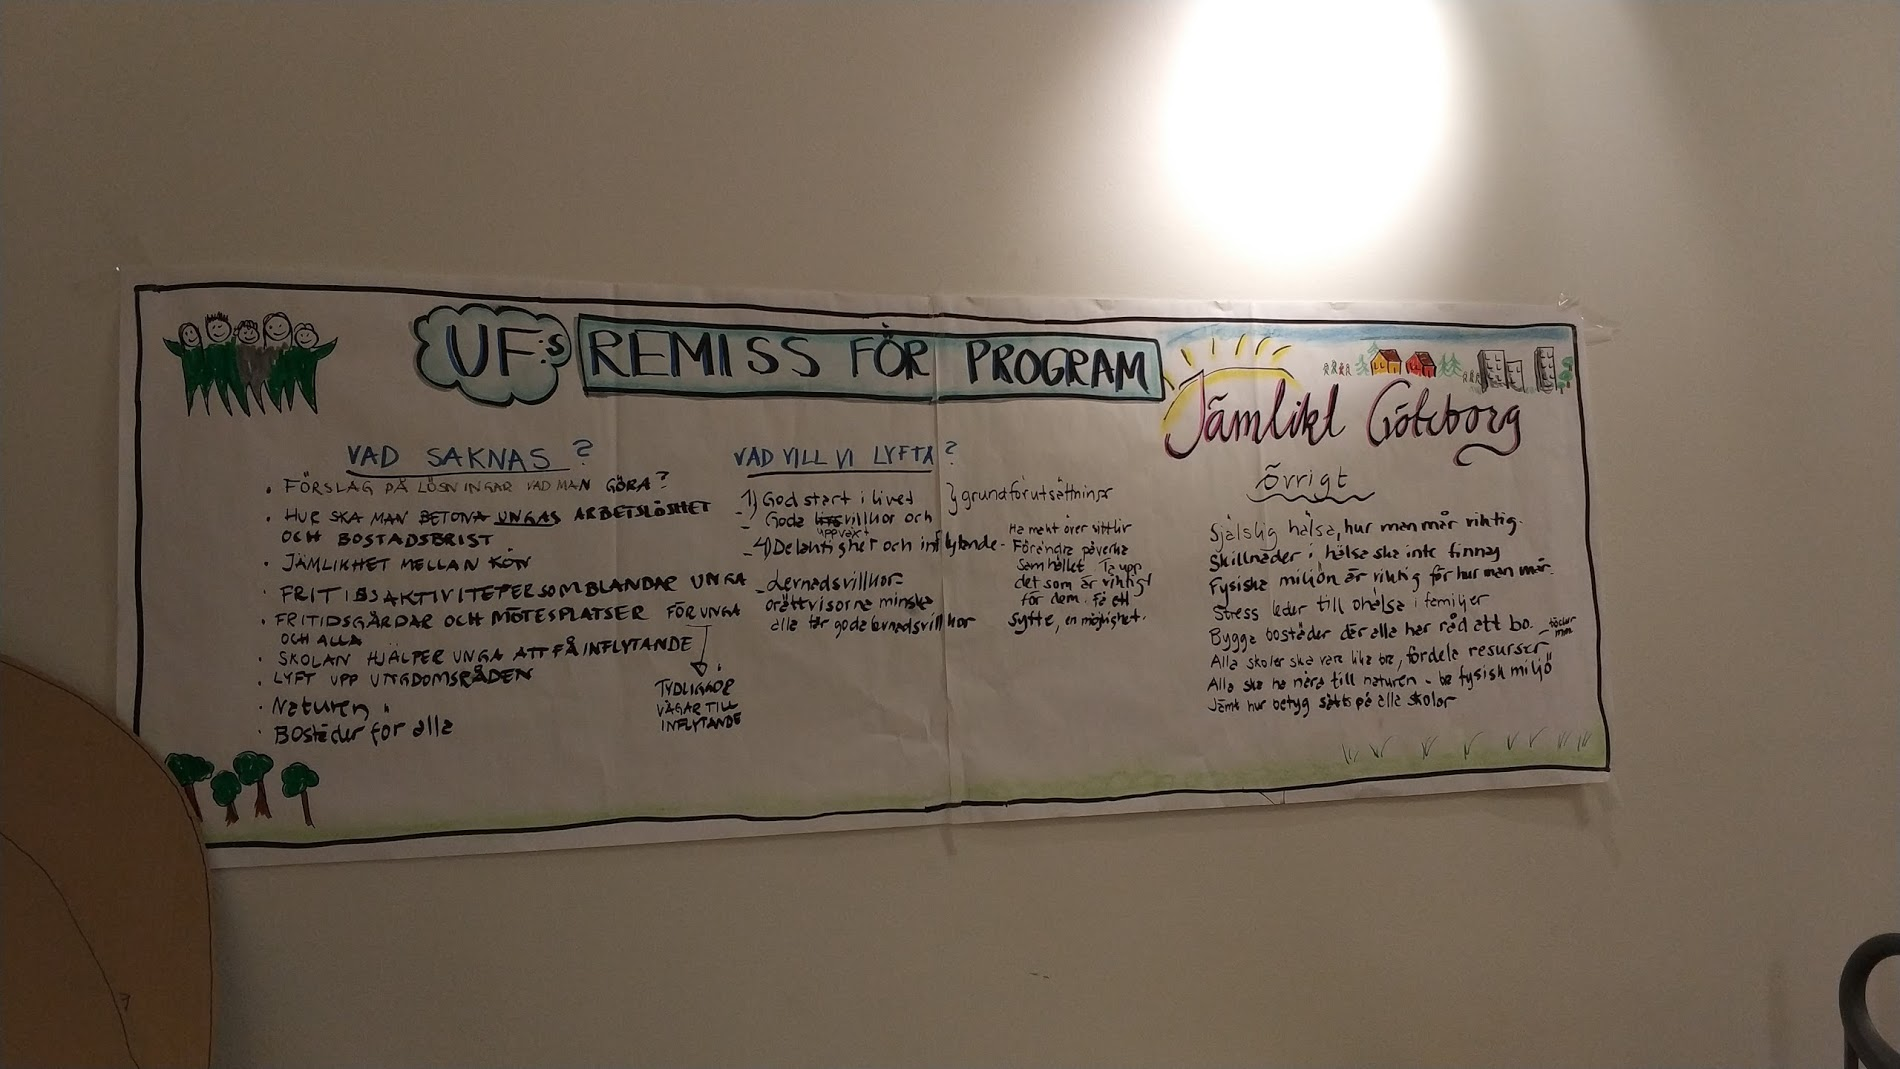 UF:s REMISS FÖR PROGRAM
Jämlikt Göteborg
VAD SAKNAS?
• FÖRSLAG PÅ LÖSNINGAR VAD MAN GÖRA?
• HUR SKA MAN BETONA UNGAS ARBETSLÖSHET
OCH BOSTADSBRIST
• JÄMLIKHET MELLAN KÖN
• FRITIDSAKTIVITETER SOM BLANDAR UNGA
• FRITIDSGÅRDAR OCH MÖTESPLATSER FÖR UNGA
OCH ALLA
• SKOLAN HJÄLPER UNGA ATT FÅ INFLYTANDE
• LYFT UPP UNGDOMSRÅDEN
• Naturen
• Bostäder för alla
TYDLIGGÖR
VÄGAR TILL
INFLYTANDE
VAD VILL VI LYFTA?
- 1) God start i livet } grundförutsättningar
- Goda villkor och
uppväxt
- 4) Delaktighet och inflytande -
- Levnadsvillkor -
orättvisorna minska
alla får goda levnadsvillkor
Ha makt över sitt liv
Förändra påverka
samhället. Ta upp
det som är viktigt
för dem. Få ett
syfte, en möjlighet.
Övrigt
Själslig hälsa, hur man mår viktig.
Skillnader i hälsa ska inte finnas
Fysiska miljön är viktig för hur man mår.
Stress leder till ohälsa i familjer
Bygga bostäder där alla har råd att bo.
Alla skolor ska vara lika bra, fördela resurser
Alla ska ha nära till naturen - bra fysisk miljö
Jämt hur betyg sätts på alla skolor